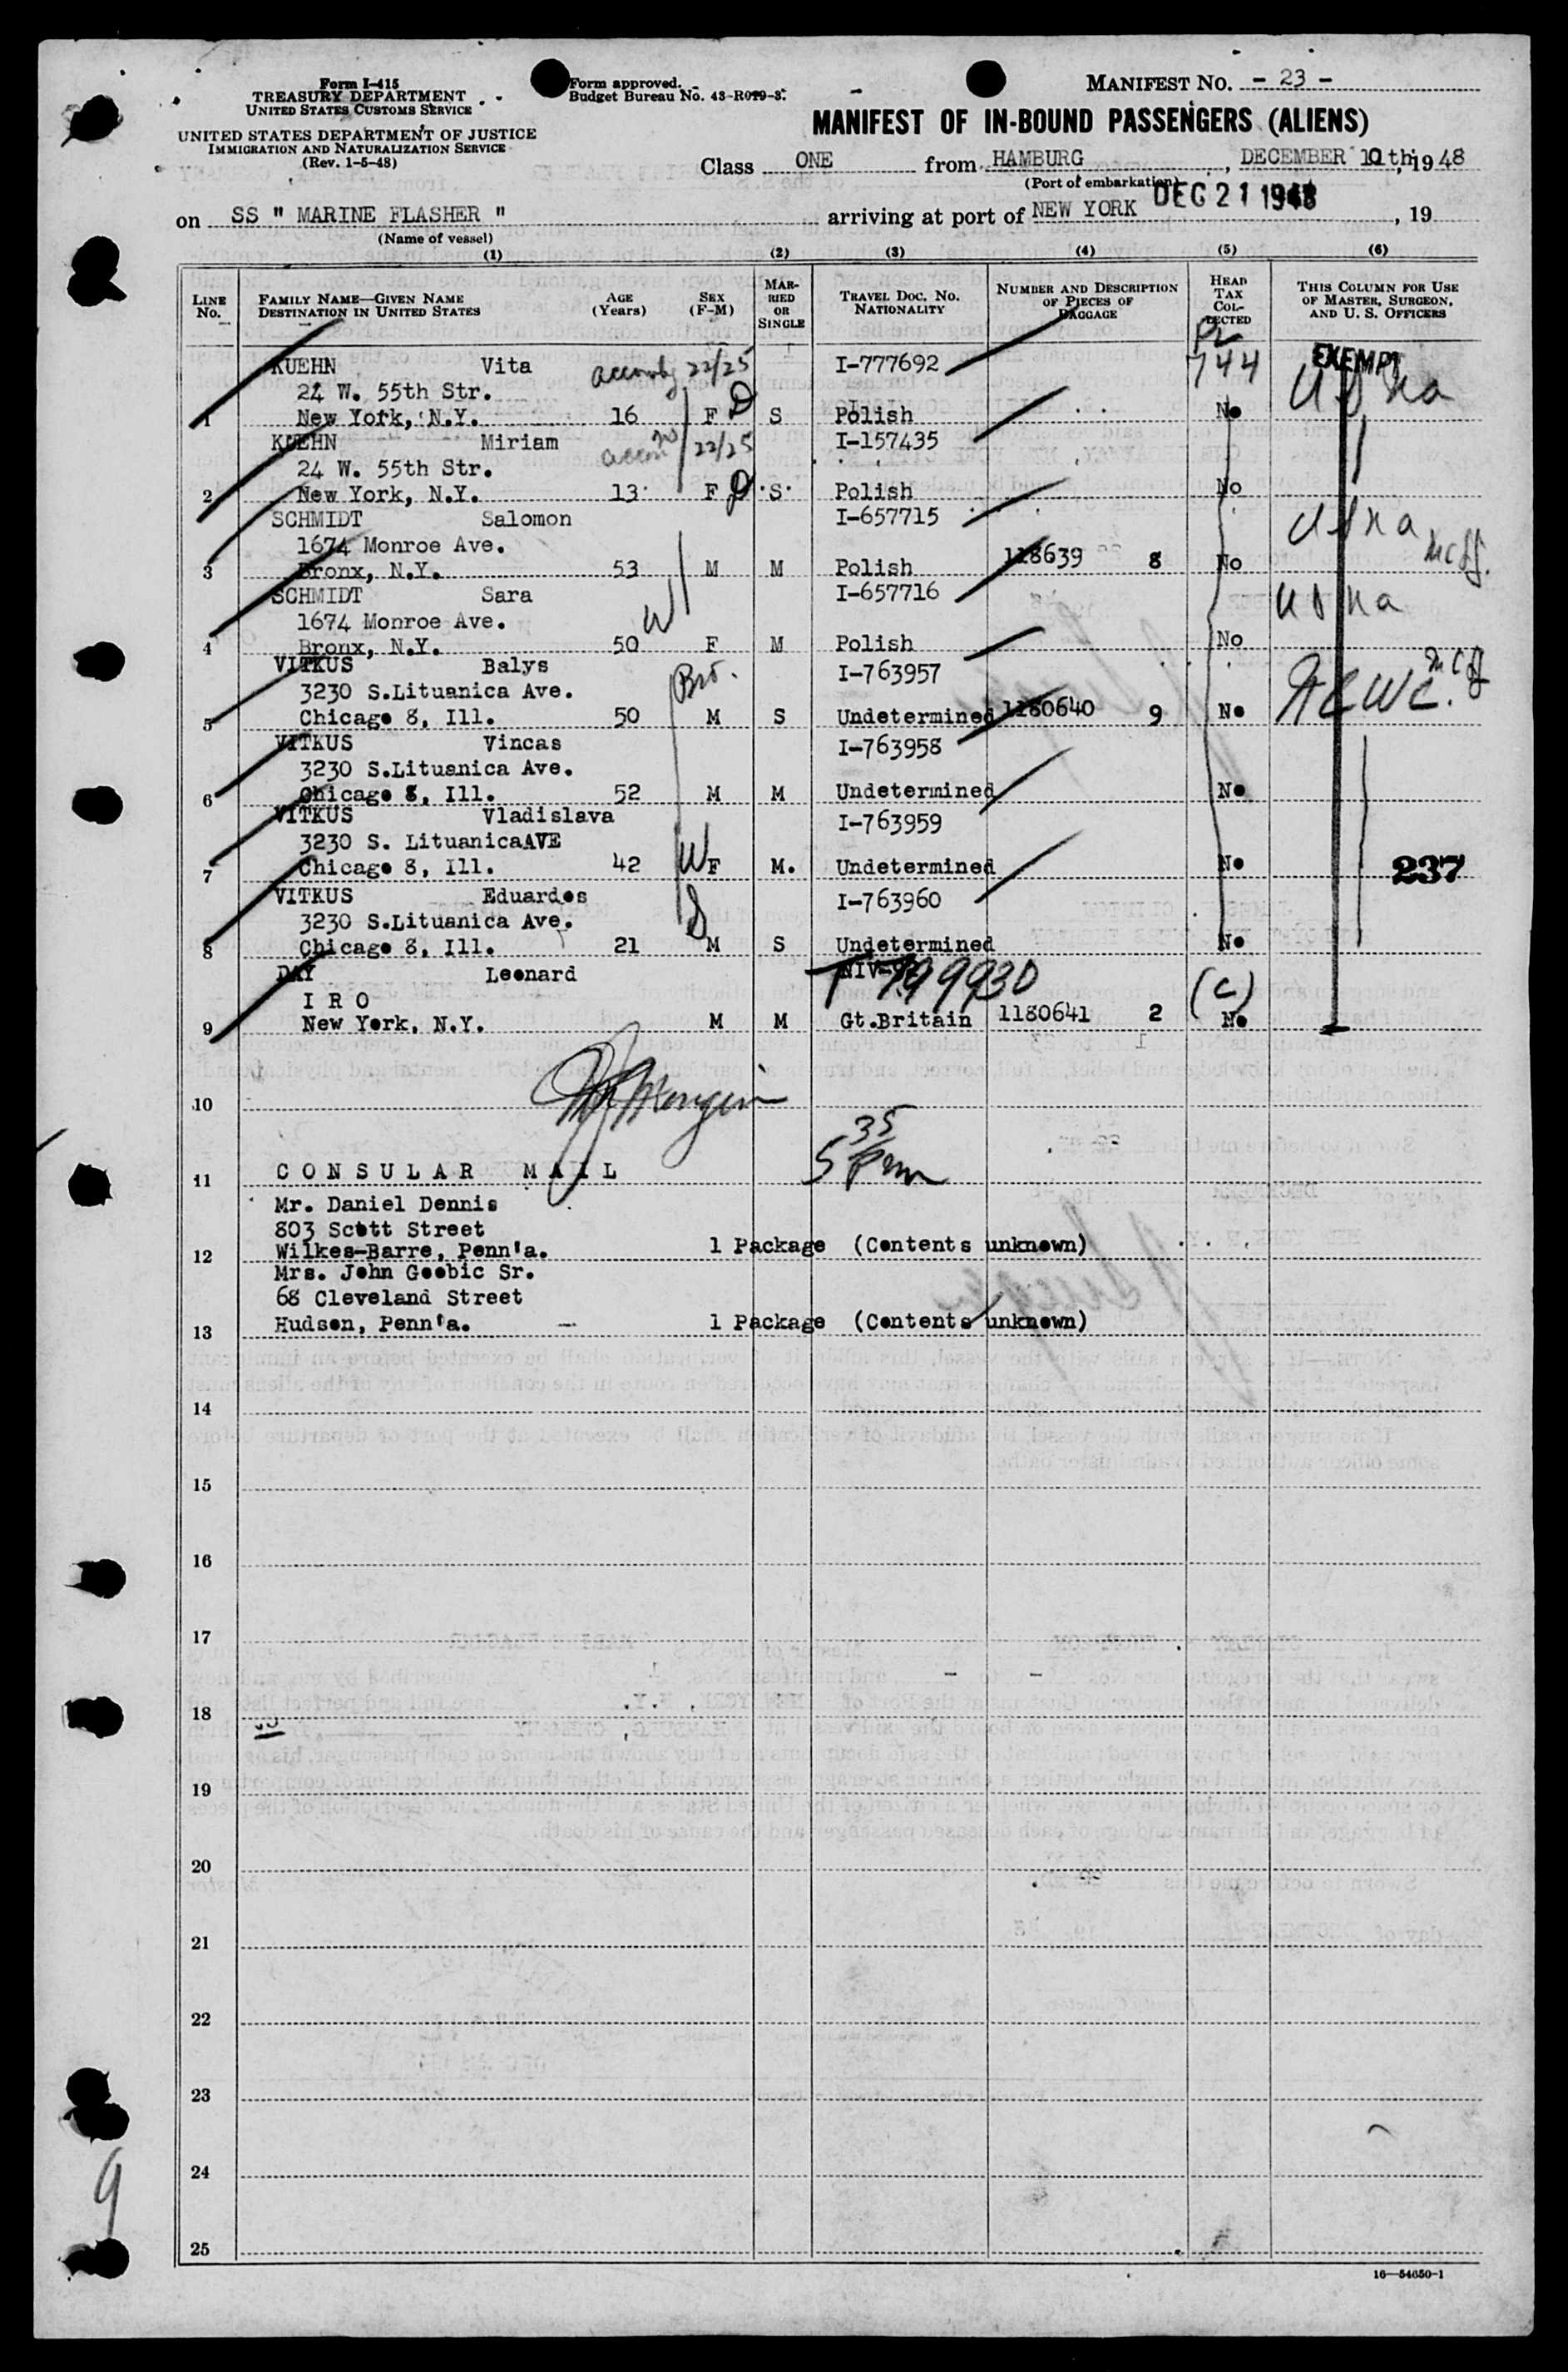 Form I-415
TREASURY DEPARTMENT
UNITED STATES CUSTOMS SERVICE
UNITED STATES DEPARTMENT OF JUSTICE
IMMIGRATION AND NATURALIZATION SERVICE
(Rev. 1-5-48)
Form approved.
Budget Bureau No. 43-R019-3.
MANIFEST NO. - 23 -
MANIFEST OF IN-BOUND PASSENGERS (ALIENS)
Class ONE from HAMBURG, DECEMBER th, 1948
(Port of embarkation)
on SS " MARINE FLASHER " arriving at port of NEW YORK DEC 21 1948, 19
(Name of vessel)
(1) (2) (3) (4) (5) (6)
LINE No. FAMILY NAME—GIVEN NAME DESTINATION IN UNITED STATES AGE (Years) SEX (F-M) MARRIED OR SINGLE TRAVEL DOC. NO. NATIONALITY NUMBER AND DESCRIPTION OF PIECES OF BAGGAGE HEAD TAX COLLECTED THIS COLUMN FOR USE OF MASTER, SURGEON, AND U. S. OFFICERS
PL
KUEHN Vita 22/25 I-777692 744 EXEMPT
24 W. 55th Str.
1 New York, N.Y. 16 F D S Polish No
KUEHN Miriam 22/25 I-157435
24 W. 55th Str.
2 New York, N.Y. 13 F D S Polish No
SCHMIDT Salomon I-657715
1674 Monroe Ave.
3 Bronx, N.Y. 53 M M Polish 118639 8 No
SCHMIDT Sara I-657716
1674 Monroe Ave. W
4 Bronx, N.Y. 50 F M Polish No
VITKUS Balys Bro. I-763957
3230 S.Lituanica Ave.
5 Chicago 8, Ill. 50 M S Undetermined 1180640 9 No
VITKUS Vincas I-763958
3230 S.Lituanica Ave.
6 Chicago 8, Ill. 52 M M Undetermined No
VITKUS Vladislava I-763959
3230 S. LituanicaAVE
7 Chicago 8, Ill. 42 W F M. Undetermined No 237
VITKUS Eduardos I-763960
3230 S.Lituanica Ave. S
8 Chicago 8, Ill. 21 M S Undetermined No
DAY Leonard T 799930 (C)
I R O
9 New York, N.Y. M M Gt.Britain 1180641 2 No
10
35
11 CONSULAR MAIL 5
Mr. Daniel Dennis
803 Scott Street
12 Wilkes-Barre, Penn'a. 1 Package (Contents unknown)
Mrs. John Goobic Sr.
68 Cleveland Street
13 Hudson, Penn'a. 1 Package (Contents unknown)
14
15
16
17
18
19
20
21
22
23
24
25
9
16—54650-1